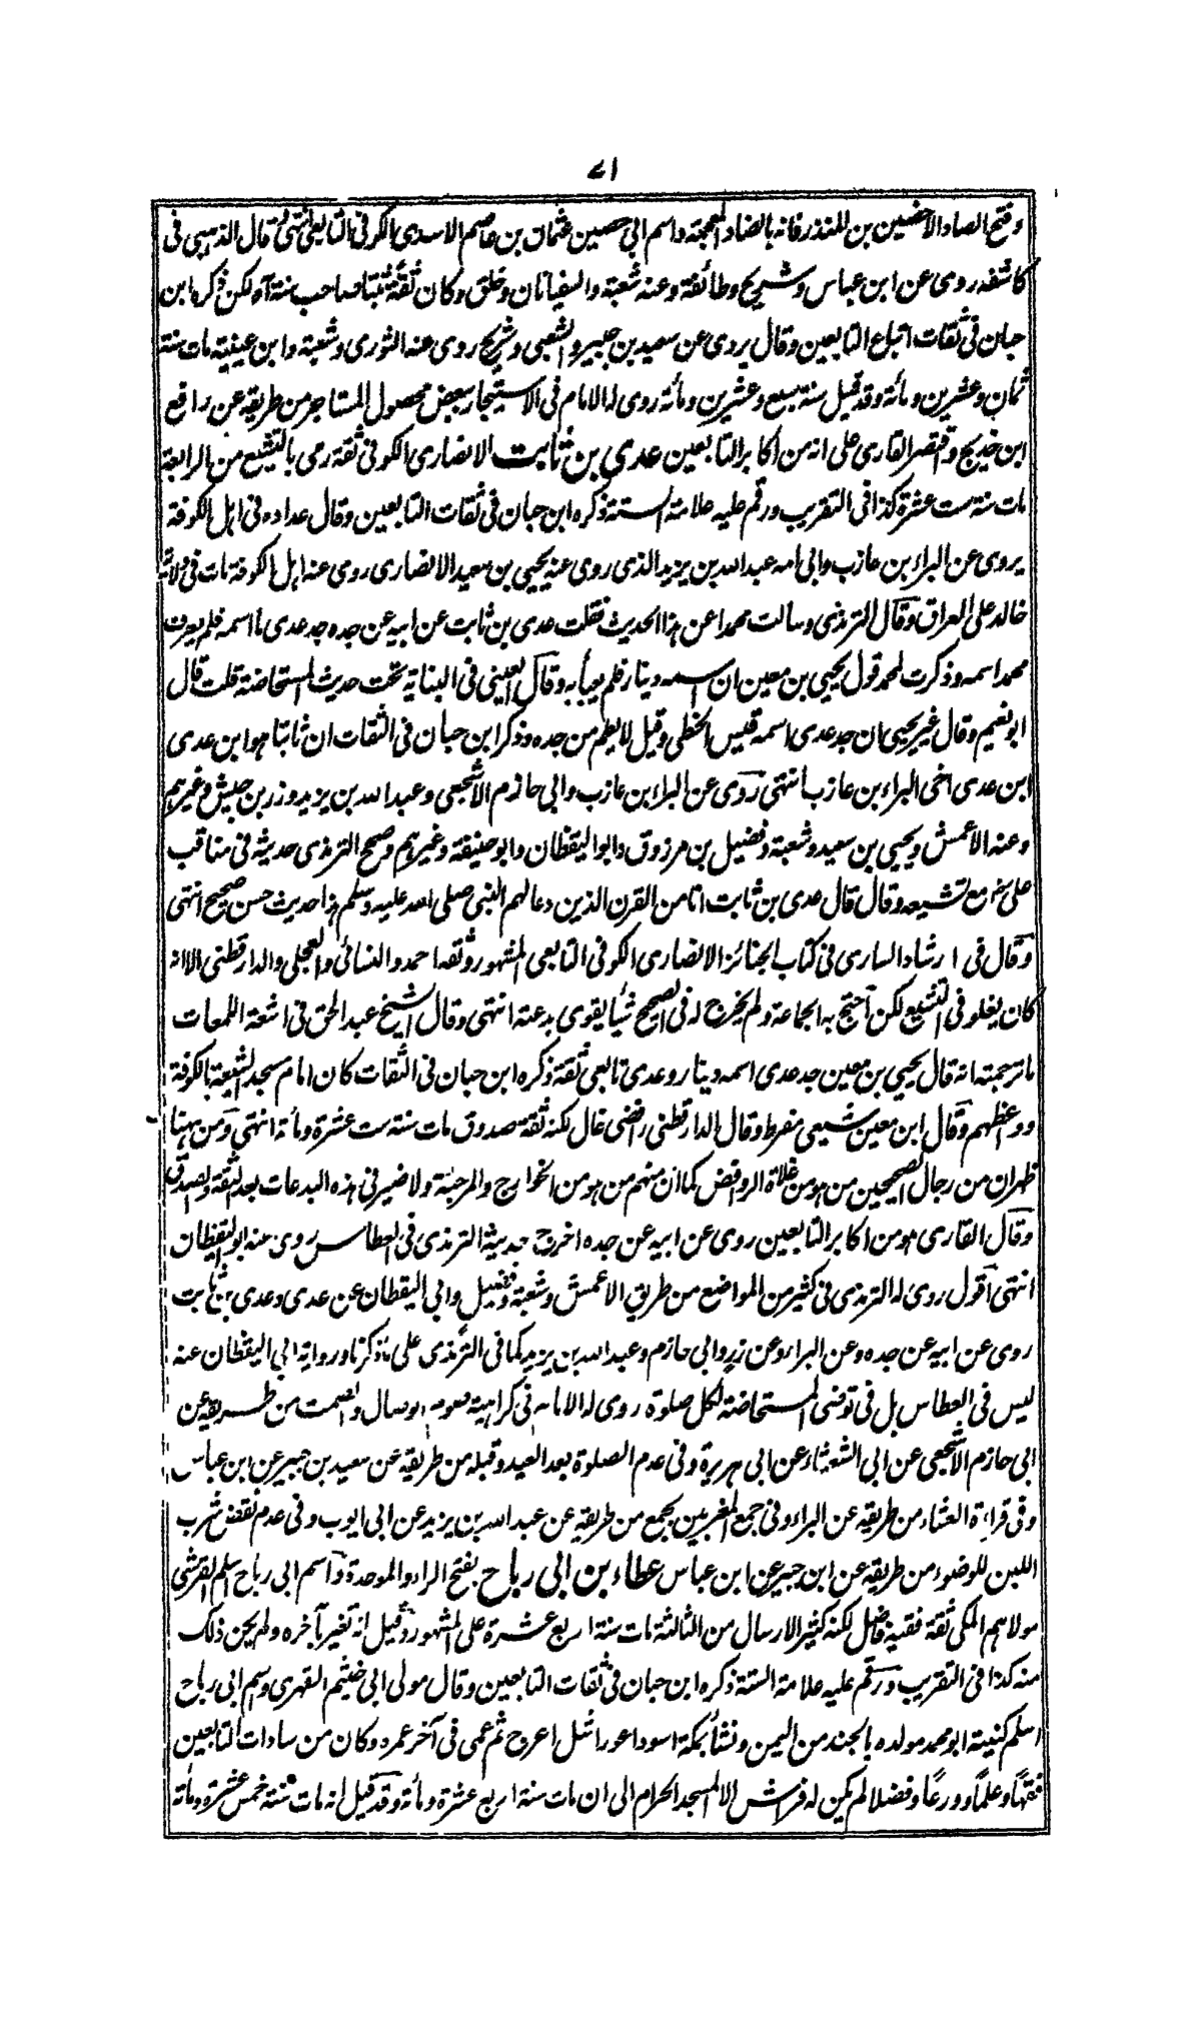 ٧١
وفتح الصاد الا حضين بن المنذر فانه بالضاد المعجمة واسم ابي حصين عثمان بن عاصم الاسدى الكوفى التابعى انتهى قال الذهبى فى
كاشفه روى عن ابن عباس وشريح وطائفة وعنه شعبة والسفيانان وخلق وكان ثقة ثبتا صاحب سنة اه لكن ذكره ابن
حبان فى ثقات اتباع التابعين وقال يروى عن سعيد بن جبير والشعبى وشريح روى عنه الثورى وشعبة وابن عيينة مات سنة
ثمان وعشرين ومائة وقد قيل سنة سبع وعشرين ومائة روى له الامام فى الاستيجار ببعض محصول المستاجر من طريقه عن رافع
ابن خديج واقتصر القارى على انه من اكابر التابعين عدى بن ثابت الانصارى الكوفى ثقة رمى بالتشيع من الرابعة
مات سنة ست عشرة كذا فى التقريب ورقم عليه علامة الستة ذكره ابن حبان فى ثقات التابعين وقال عداده فى اهل الكوفة
يروى عن البراء بن عازب وابى امه عبد الله بن يزيد الذى روى عنه يحيى بن سعيد الانصارى روى عنه اهل الكوفة مات فى ولاية
خالد على العراق وقال الترمذى وسالت محمدا عن هذا الحديث فقلت عدى بن ثابت عن ابيه عن جده جد عدى ما اسمه فلم يعرف
محمد اسمه وذكرت لمحمد قول يحيى بن معين ان اسمه دينار فلم يعبأ به وقال العينى فى البناية تحت حديث المستحاضة قلت قال
ابو نعيم وقال غير يحيى ان جد عدى اسمه قيس الخطمى وقيل لا يعلم من جده وذكر ابن حبان فى الثقات ان ثابتا هو ابن عدى
ابن عدى اخى البراء بن عازب انتهى روى عن البراء بن عازب وابى حازم الاشجعى وعبد الله بن يزيد وزر بن حبيش وغيرهم
وعنه الاعمش ويحيى بن سعيد وشعبة وفضيل بن مرزوق وابو اليقظان وابو حنيفة وغيرهم وصحح الترمذى حديثه فى مناقب
على رض مع تشيعه وقال قال عدى بن ثابت انا من القرن الذين دعا لهم النبى صلى الله عليه وسلم هذا حديث حسن صحيح انتهى
وقال فى ارشاد السارى فى كتاب الجنائز الانصارى الكوفى التابعى المشهور وثقه احمد والنسائى والعجلى والدارقطنى الا انه
كان يغلو فى التشيع لكن احتج به الجماعة ولم يخرج له فى الصحيح شيأ يقوى بدعته انتهى وقال الشيخ عبد الحق فى اشعة اللمعات
ما ترجمته انه قال يحيى بن معين جد عدى اسمه دينار وعدى تابعى ثقة ذكره ابن حبان فى الثقات كان امام مسجد الشيعة بالكوفة
وواعظهم وقال ابن معين شيعى مفرط وقال الدارقطنى رافضى غال لكنه ثقة صدوق مات سنة ست عشرة ومائة انتهى ومن ههنا
ظهر ان من رجال الصحيحين من هو من غلاة الروافض كما ان منهم من هو من الخوارج والمرجئة ولا ضير فى هذه البدعات بعد الثقة والصدق
وقال القارى هو من اكابر التابعين روى عن ابيه عن جده اخرج حديثه الترمذى فى العطاس روى عنه ابو اليقظان
انتهى اقول روى له الترمذى فى كثير من المواضع من طريق الاعمش وشعبة وفضيل وابى اليقظان عن عدى وعدى بن ثابت
روى عن ابيه عن جده وعن البراء وعن زر وابى حازم وعبد الله بن يزيد كما فى الترمذى على ما ذكرنا ورواية ابى اليقظان عنه
ليس فى العطاس بل فى توضى المستحاضة لكل صلوة روى له الامام فى كراهية صوم الوصال والصمت من طريقه عن
ابى حازم الاشجعى عن ابى الشعثاء عن ابى هريرة وفى عدم الصلوة بعد العيد وقبله من طريقه عن سعيد بن جبير عن ابن عباس
وفى قراءة العشاء من طريقه عن البراء وفى جمع المغربين بجمع من طريقه عن عبد الله بن يزيد عن ابى ايوب وفى عدم نقض شرب
اللبن للوضوء من طريقه عن ابن جبير عن ابن عباس عطاء بن ابى رباح بفتح الراء والموحدة واسم ابى رباح اسلم القرشى
مولاهم المكى ثقة فقيه فاضل لكنه كثير الارسال من الثالثة مات سنة اربع عشرة على المشهور وقيل انه تغير بآخره ولم يكن ذلك
منه كذا فى التقريب ورقم عليه علامة الستة ذكره ابن حبان فى ثقات التابعين وقال مولى ابى خثيم الفهرى واسم ابى رباح
اسلم كنيته ابو محمد مولده بالجند من اليمن ونشأ بمكة اسود اعور اشل اعرج ثم عمى فى آخر عمره وكان من سادات التابعين
فقهًا وعلمًا وورعًا وفضلا لم يكن له فراش الا المسجد الحرام الى ان مات سنة اربع عشرة ومائة وقد قيل انه مات سنة خمس عشرة ومائة